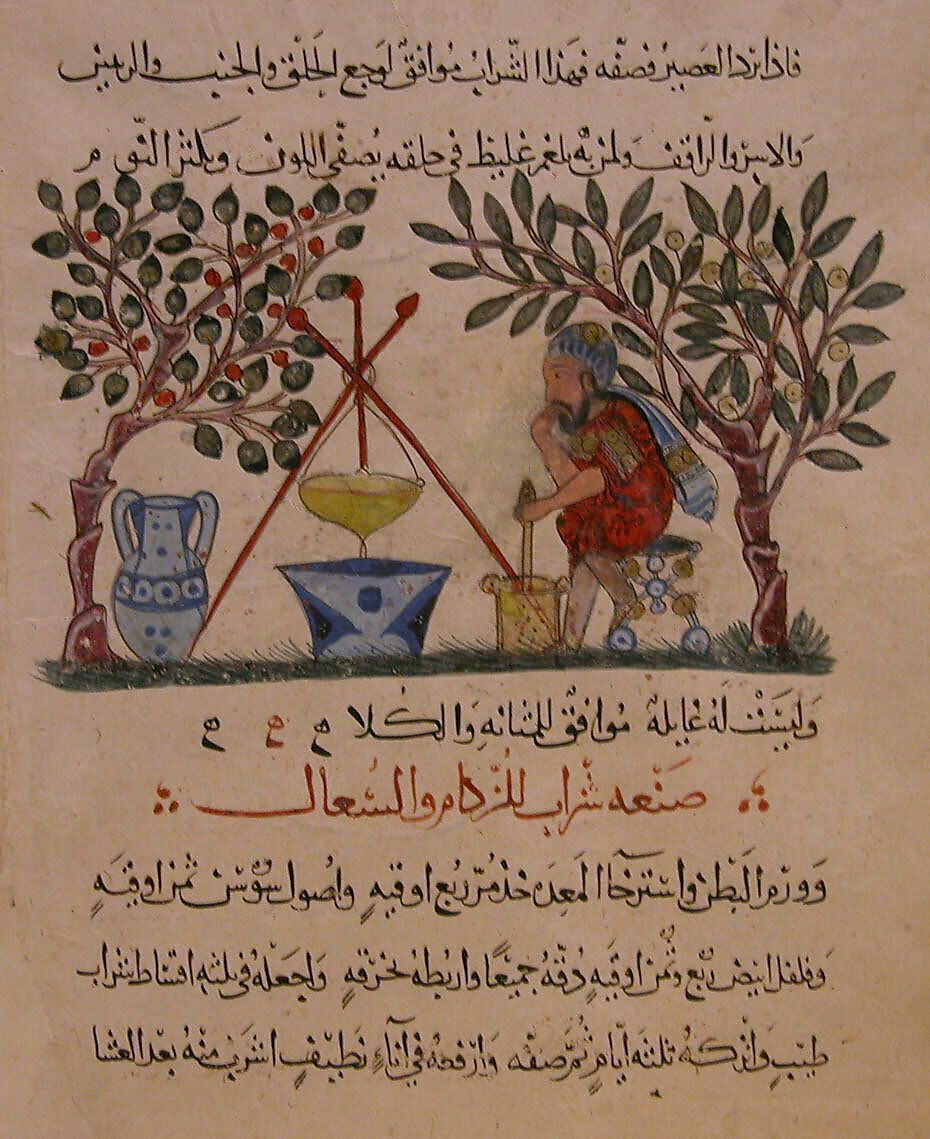 فاذا برد العصير فصفه فهذا الشراب موافق لوجع الحلق والجنب والريتين
ولمن به بلغم غليظ في حلقه يصفي اللون ويكثر النوم
وليست له غايلة موافق للمثانه والكلا
صنعه شراب للزكام والسعال
وورم البطن واسترخا المعده خذ مر ربع اوقيه واصول سوسن ثمن اوقيه
وفلفل ابيض ربع وثمن اوقيه دقه جميعا واربطه بخرقه واجعله في ثلثه اقساط شراب
طيب واتركه ثلثه ايام ثم صفه وارفعه في آناء نظيف اشرب منه بعد العشا